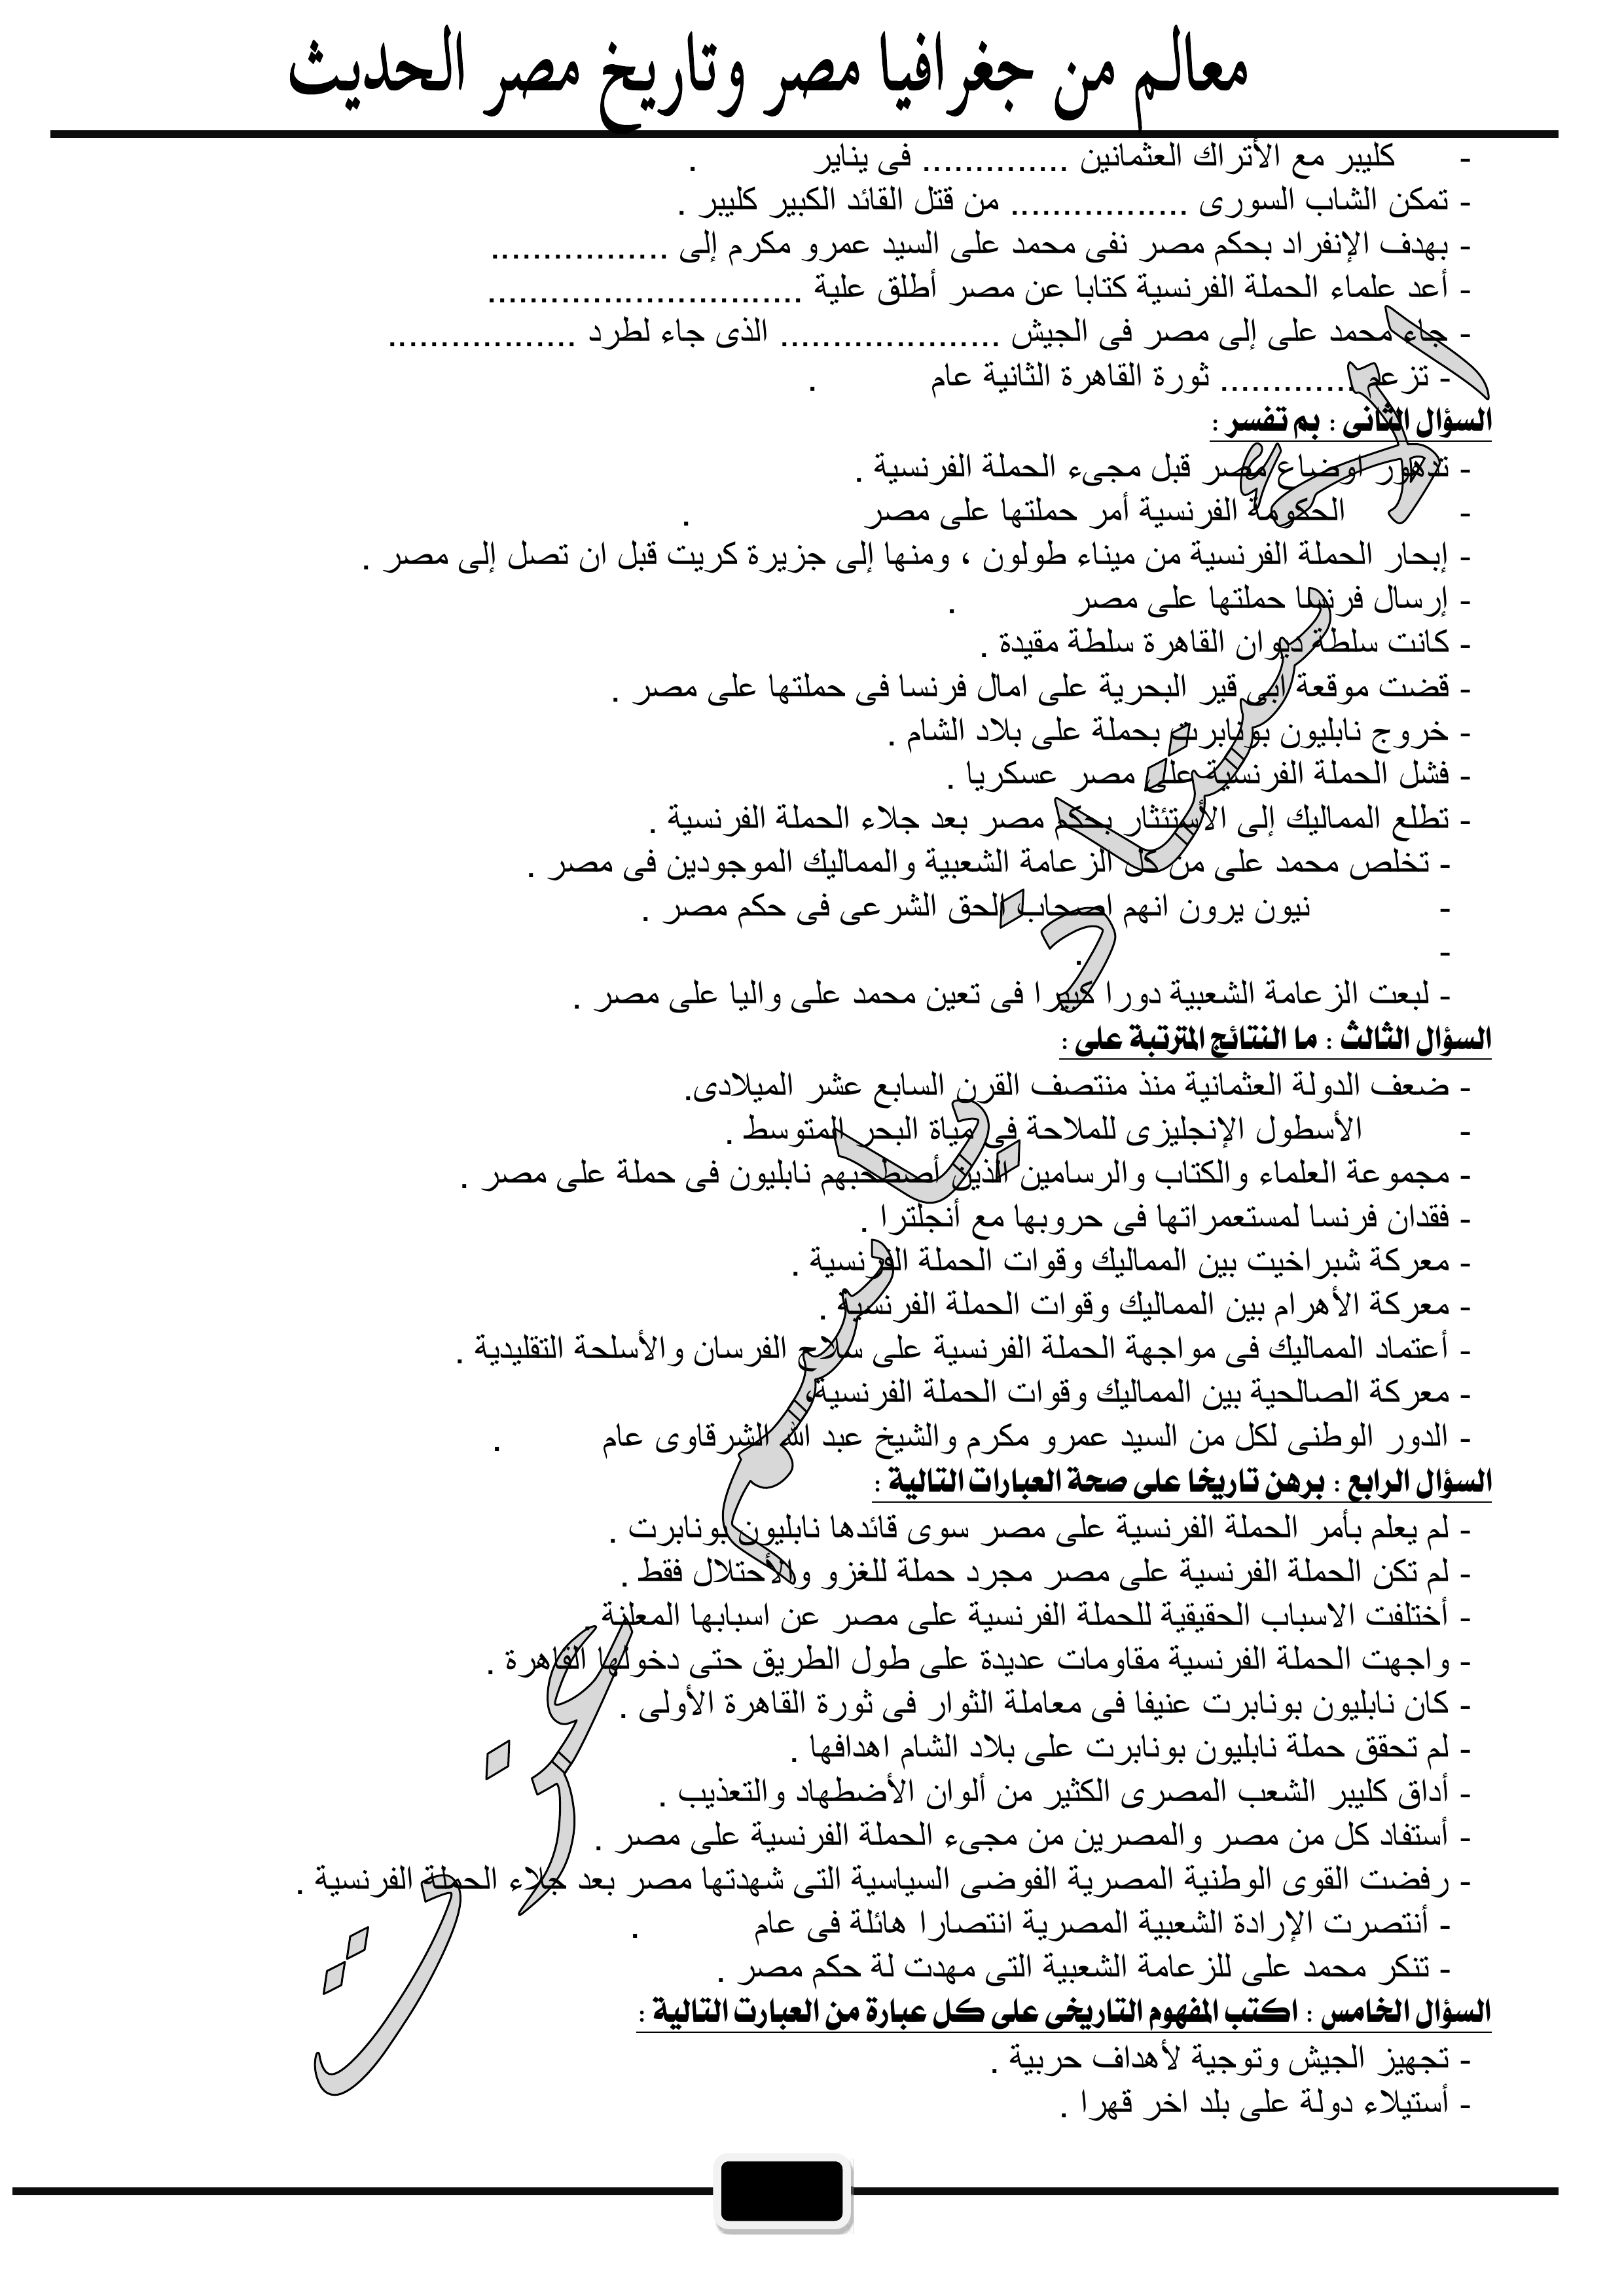 معالم من جغرافيا مصر وتاريخ مصر الحديث
- كليبر مع الأتراك العثمانين .............. فى يناير .
- تمكن الشاب السورى ................. من قتل القائد الكبير كليبر .
- بهدف الإنفراد بحكم مصر نفى محمد على السيد عمرو مكرم إلى .................
- أعد علماء الحملة الفرنسية كتابا عن مصر أطلق علية ..............................
- جاء محمد على إلى مصر فى الجيش ..................... الذى جاء لطرد ..................
- تزعم ............. ثورة القاهرة الثانية عام .
السؤال الثانى : بم تفسر :
- تدهور اوضاع مصر قبل مجىء الحملة الفرنسية .
- الحكومة الفرنسية أمر حملتها على مصر .
- إبحار الحملة الفرنسية من ميناء طولون ، ومنها إلى جزيرة كريت قبل ان تصل إلى مصر .
- إرسال فرنسا حملتها على مصر .
- كانت سلطة ديوان القاهرة سلطة مقيدة .
- قضت موقعة ابى قير البحرية على امال فرنسا فى حملتها على مصر .
- خروج نابليون بونابرت بحملة على بلاد الشام .
- فشل الحملة الفرنسية على مصر عسكريا .
- تطلع المماليك إلى الأستئثار بحكم مصر بعد جلاء الحملة الفرنسية .
- تخلص محمد على من كل الزعامة الشعبية والمماليك الموجودين فى مصر .
- نيون يرون انهم اصحاب الحق الشرعى فى حكم مصر .
- .
- لبعت الزعامة الشعبية دورا كبيرا فى تعين محمد على واليا على مصر .
السؤال الثالث : ما النتائج المترتبة على :
- ضعف الدولة العثمانية منذ منتصف القرن السابع عشر الميلادى.
- الأسطول الإنجليزى للملاحة فى مياة البحر المتوسط .
- مجموعة العلماء والكتاب والرسامين الذين أصطحبهم نابليون فى حملة على مصر .
- فقدان فرنسا لمستعمراتها فى حروبها مع أنجلترا .
- معركة شبراخيت بين المماليك وقوات الحملة الفرنسية .
- معركة الأهرام بين المماليك وقوات الحملة الفرنسية .
- أعتماد المماليك فى مواجهة الحملة الفرنسية على سلاح الفرسان والأسلحة التقليدية .
- معركة الصالحية بين المماليك وقوات الحملة الفرنسية،
- الدور الوطنى لكل من السيد عمرو مكرم والشيخ عبد الله الشرقاوى عام .
السؤال الرابع : برهن تاريخا على صحة العبارات التالية :
- لم يعلم بأمر الحملة الفرنسية على مصر سوى قائدها نابليون بونابرت .
- لم تكن الحملة الفرنسية على مصر مجرد حملة للغزو والأحتلال فقط .
- أختلفت الاسباب الحقيقية للحملة الفرنسية على مصر عن اسبابها المعلنة .
- واجهت الحملة الفرنسية مقاومات عديدة على طول الطريق حتى دخولها القاهرة .
- كان نابليون بونابرت عنيفا فى معاملة الثوار فى ثورة القاهرة الأولى .
- لم تحقق حملة نابليون بونابرت على بلاد الشام اهدافها .
- أداق كليبر الشعب المصرى الكثير من ألوان الأضطهاد والتعذيب .
- أستفاد كل من مصر والمصرين من مجىء الحملة الفرنسية على مصر .
- رفضت القوى الوطنية المصرية الفوضى السياسية التى شهدتها مصر بعد جلاء الحملة الفرنسية .
- أنتصرت الإرادة الشعبية المصرية انتصارا هائلة فى عام .
- تنكر محمد على للزعامة الشعبية التى مهدت لة حكم مصر .
السؤال الخامس : اكتب المفهوم التاريخى على كل عبارة من العبارت التالية :
- تجهيز الجيش وتوجية لأهداف حربية .
- أستيلاء دولة على بلد اخر قهرا .